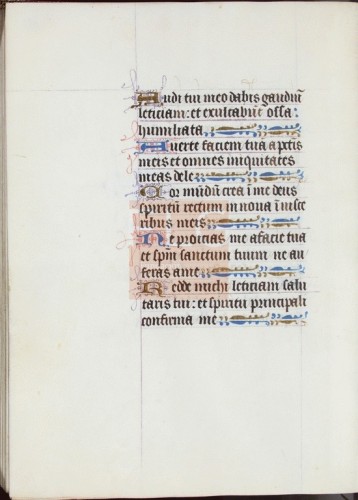 Audi tui meo dabis gaudiū
leticiam: et exultabūt ossa
humiliata
Auerte faciem tuā a pctīs
meis et omnes iniquitates
meas dele
Cor mūdū crea ī me deus
spiritū rectum innoua ī visce
ribus meis
Ne proicias me a facie tua
et spm̄ sanctum tuum ne au
feras a me
Redde michi leticiam salu
taris tui: et spiritu principali
confirma me